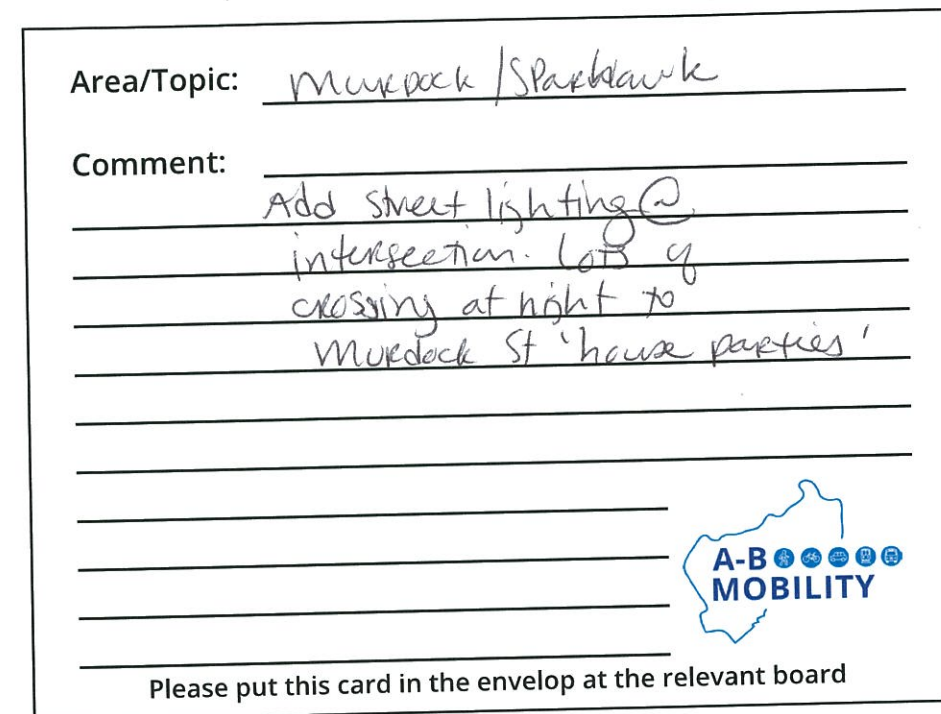 Area/Topic: Murdock / Sparhawk
Comment:
Add street lighting @
intersection. lots of
crossing at night to
Murdock St 'house parties'
A-B
MOBILITY
Please put this card in the envelop at the relevant board